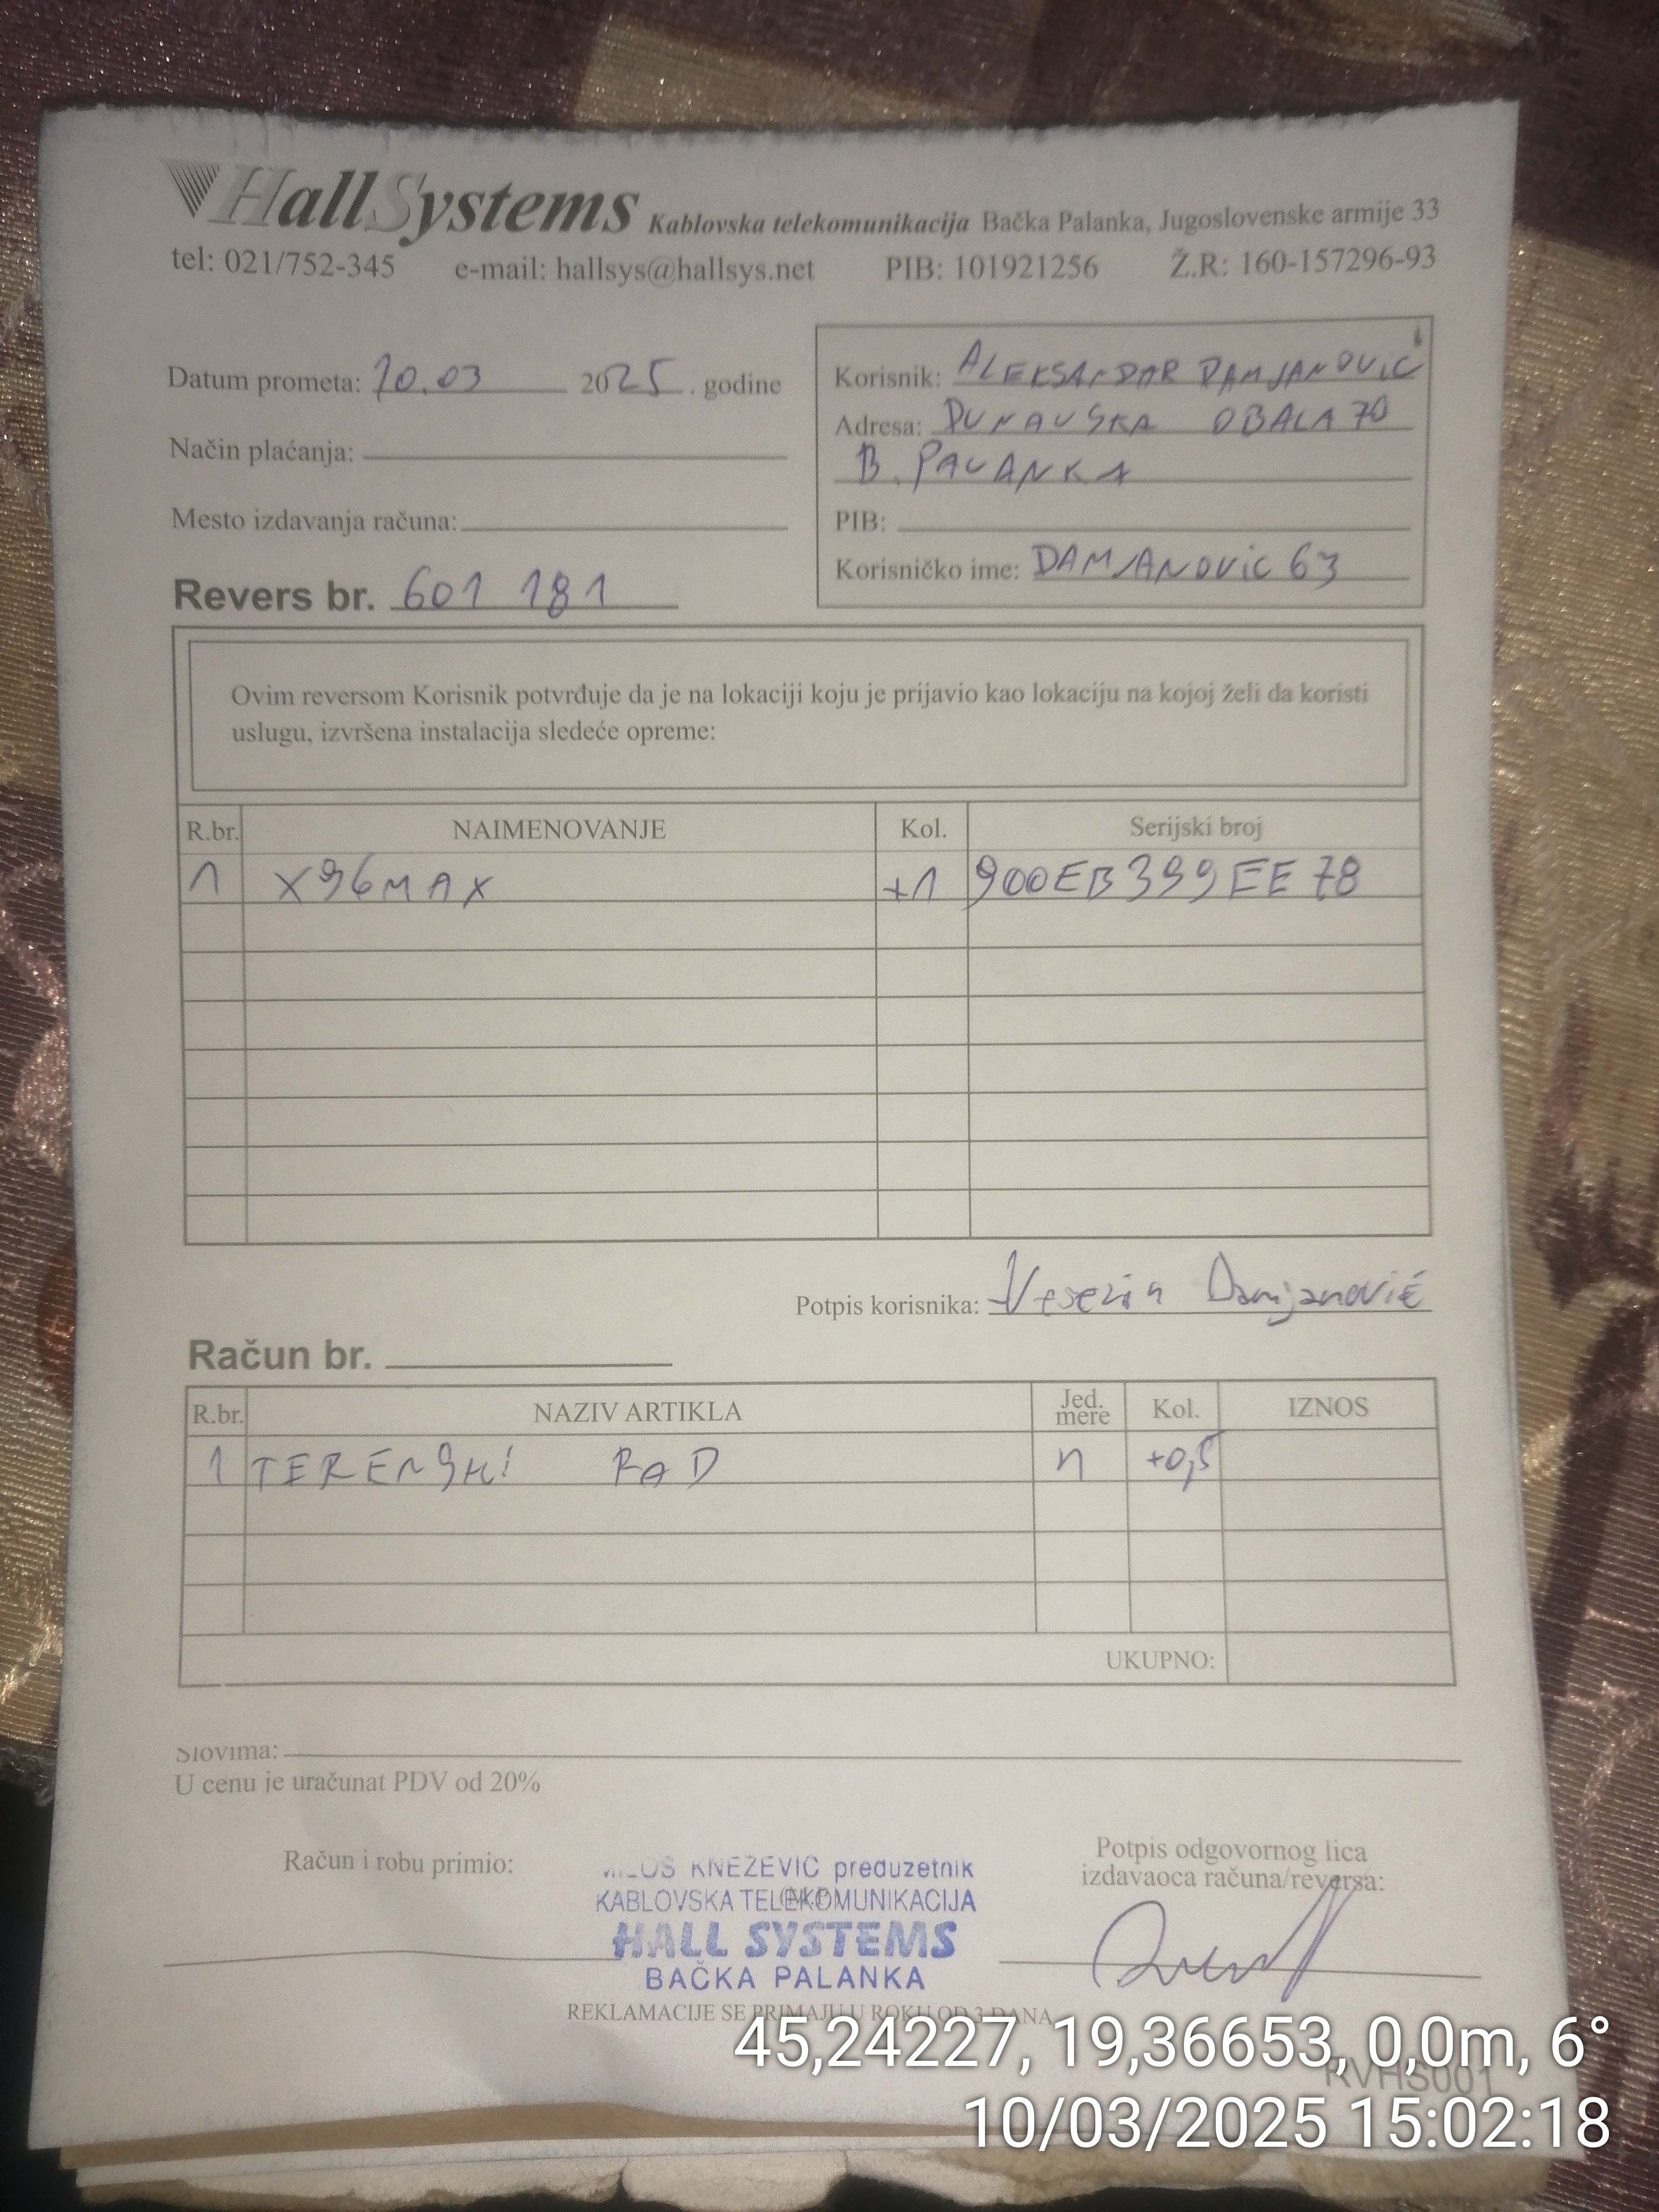 HallSystems Kablovska telekomunikacija Bačka Palanka, Jugoslovenske armije 33
tel: 021/752-345 e-mail: hallsys@hallsys.net PIB: 101921256 Ž.R: 160-157296-93
Datum prometa: 10.03 2025. godine
Način plaćanja:
Mesto izdavanja računa:
Revers br. 601 181
Korisnik: ALEKSANDAR DAMJANOVIC
Adresa: DUNAVSKA OBALA 70
B. PALANKA
PIB:
Korisničko ime: DAMJANOVIC 63
Ovim reversom Korisnik potvrđuje da je na lokaciji koju je prijavio kao lokaciju na kojoj želi da koristi
uslugu, izvršena instalacija sledeće opreme:
R.br. NAIMENOVANJE Kol. Serijski broj
1 X96MAX +1 900EB399EE78
Potpis korisnika: Veselin Damjanović
Račun br.
R.br. NAZIV ARTIKLA Jed. mere Kol. IZNOS
1 TERENSKI RAD n +0,5
UKUPNO:
Slovima:
U cenu je uračunat PDV od 20%
Račun i robu primio:
MILOS KNEZEVIC preduzetnik
KABLOVSKA TELEKOMUNIKACIJA
HALL SYSTEMS
BAČKA PALANKA
Potpis odgovornog lica
izdavaoca računa/reversa:
REKLAMACIJE SE PRIMAJU U ROKU OD 3 DANA
RVHS001
45,24227, 19,36653, 0,0m, 6°
10/03/2025 15:02:18